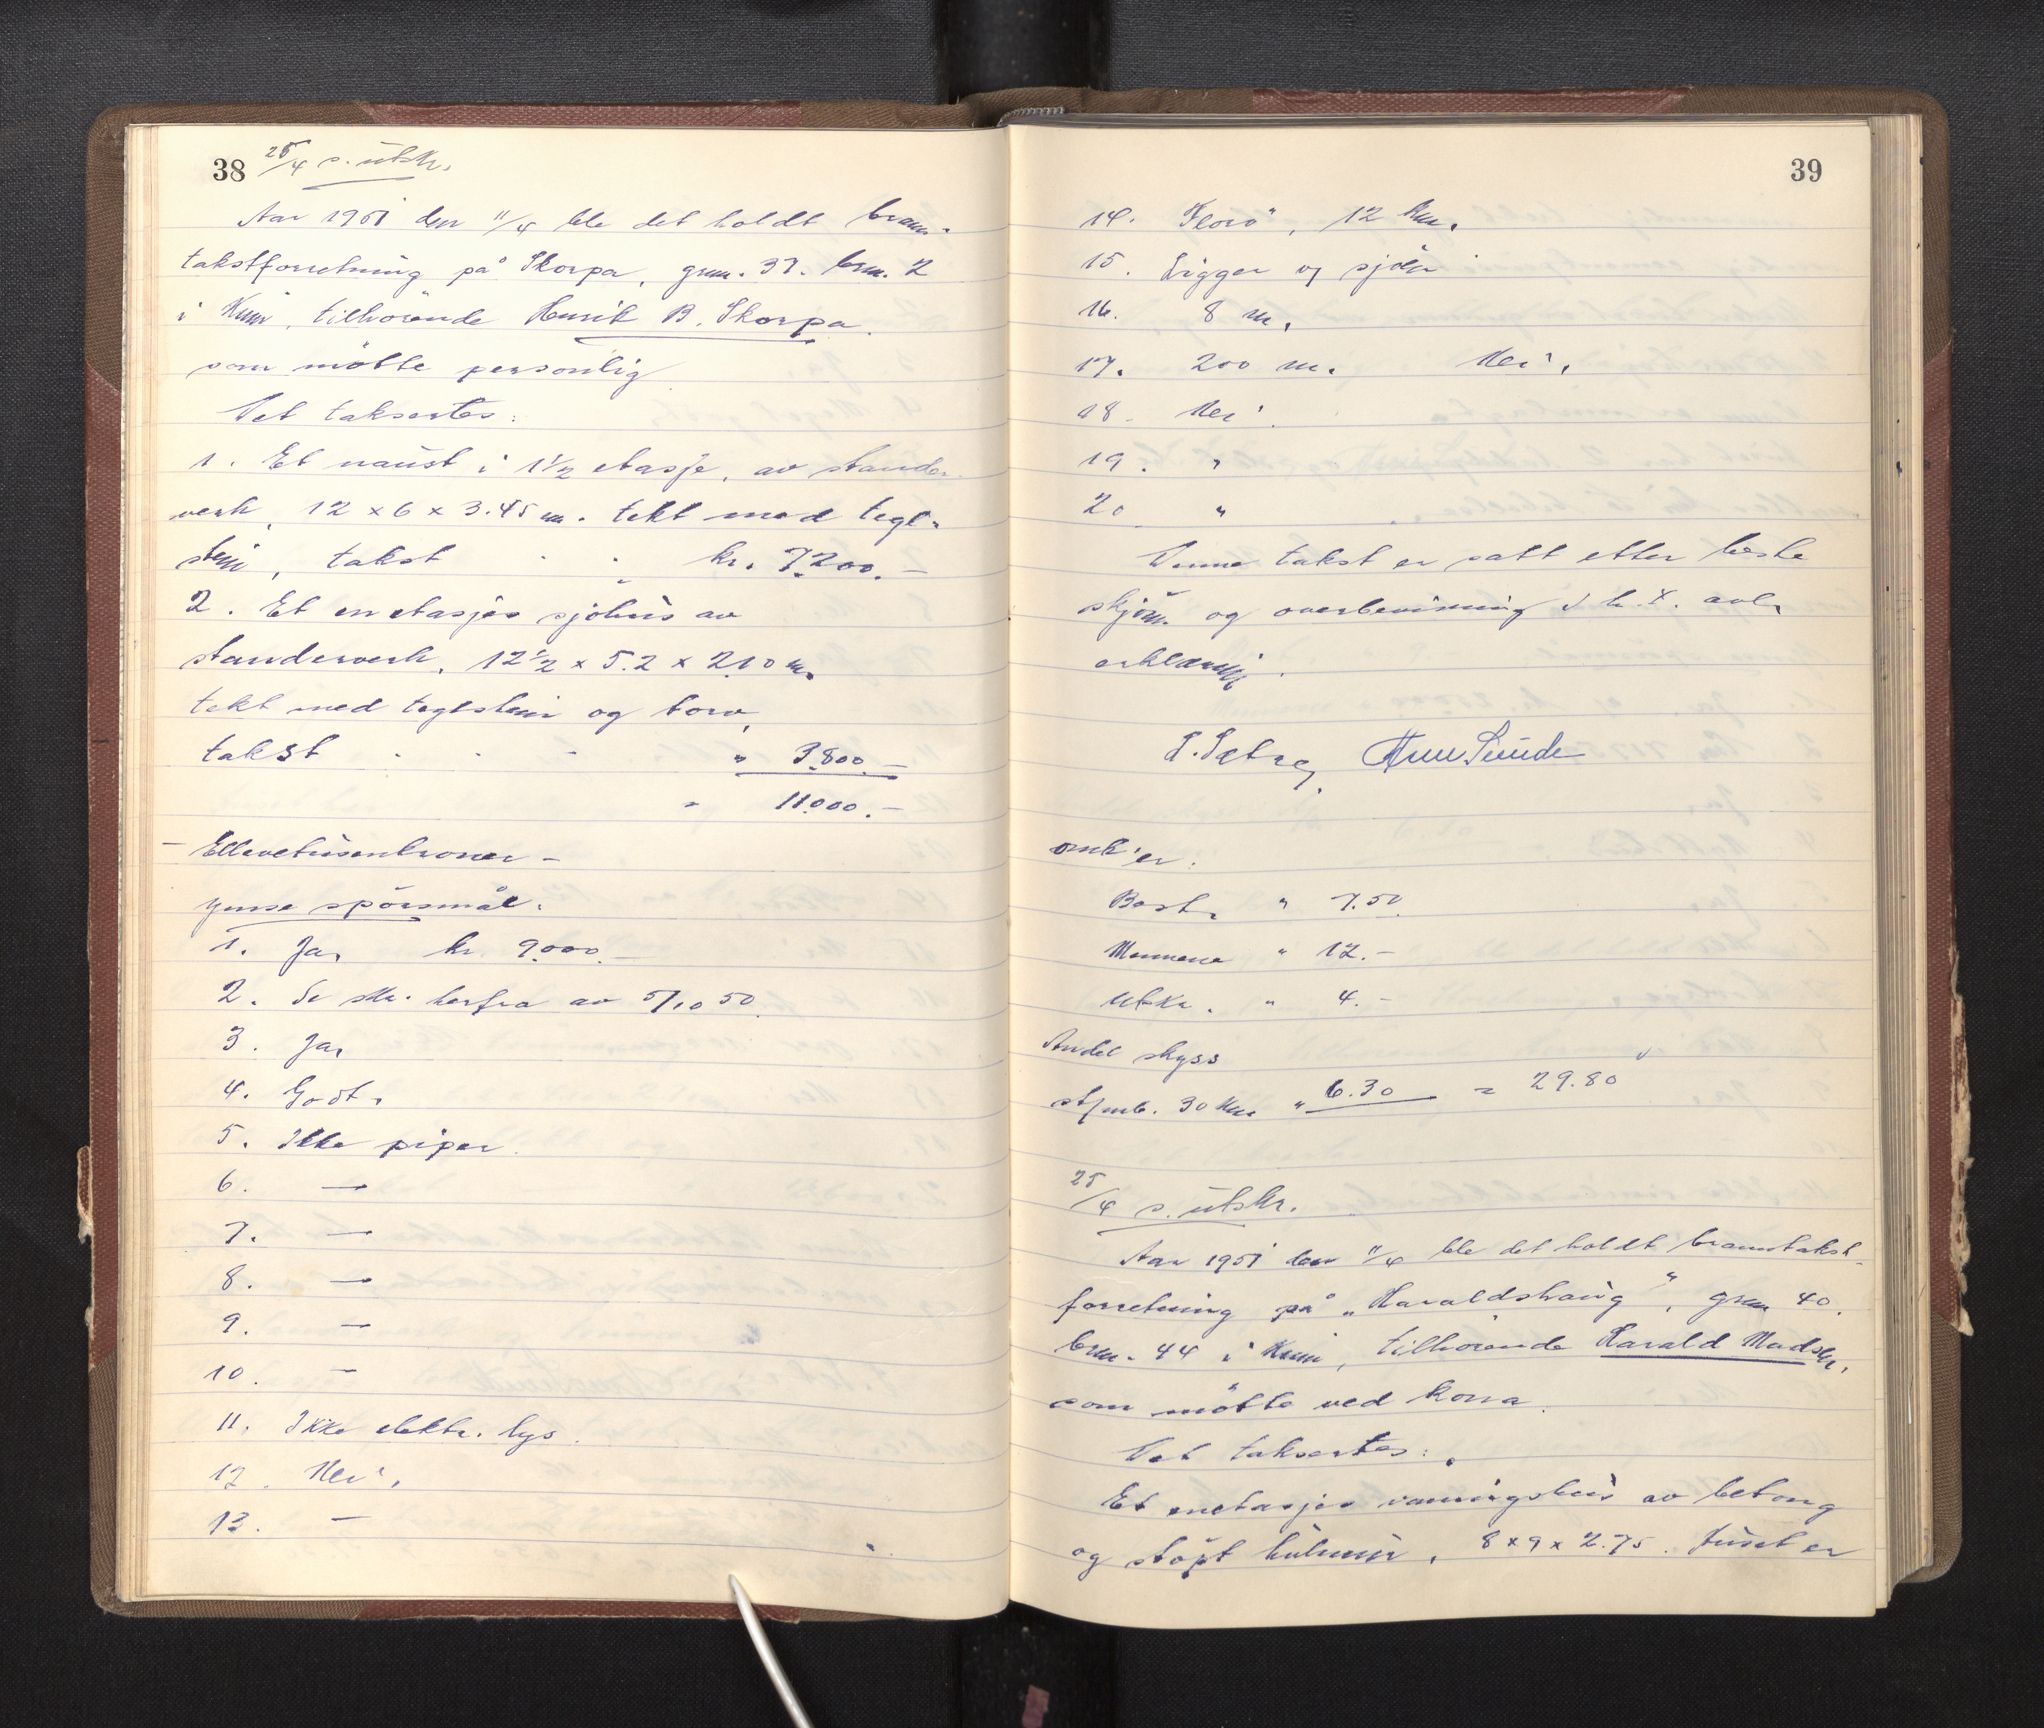 38 25/4 s. utskr.
Aar 1951 den 11/4 ble det holdt brann-
takstforretning på Skorpa, gnr. 37. brn. 2
i Kinn, tilhørende Henrik B. Skorpa.
som møtte personlig
Det taksertes:
1. Et naust i 1½ etasje, av stander-
verk, 12 x 6 x 3.45 m. tekt med tegl-
stein, takst kr. 7.200.-
2. Et en etasjes sjøhus av
standerverk, 12½ x 5.2 x 2.10 m.
tekt med teglstein og torv,
takst - - - " 3.800.-
" 11.000.-
- Ellevetusenkroner -
Ymse spørsmål.
1. Ja, kr. 9.000.-
2. Se skr. herfra av 5/10 50.
3. Ja,
4. Godt.
5. Ikke piper.
6. —
7. —
8. —
9. —
10. —
11. Ikke elektr. lys.
12. Nei,
13. —
39
14. "Florø", 12 km.
15. Ligger v/ sjøen
16. 8 m.
17. 200 m. Nei,
18. Nei.
19. "
20 "
Denne takst er satt etter beste
skjøn. og overbevisning i h. t. avl.
erklæring.
Arne Sunde
omk'er:
Best. " 7.50.
Mennene " 12.-
Utskr. " 4.-
Andel skyss
30 km " 6.30 = 29.80
25/4 s. utskr.
Aar 1951 den 11/4 ble det holdt branntakst-
forretning på "Haraldshaug", gnr 40.
brn. 44 i Kinn, tilhørende Harald Madsen,
som møtte ved kona.
Det taksertes:
Et enetasjes vaningshus av betong
og støpt hulmur, 8 x 9 x 2.75. Huset er